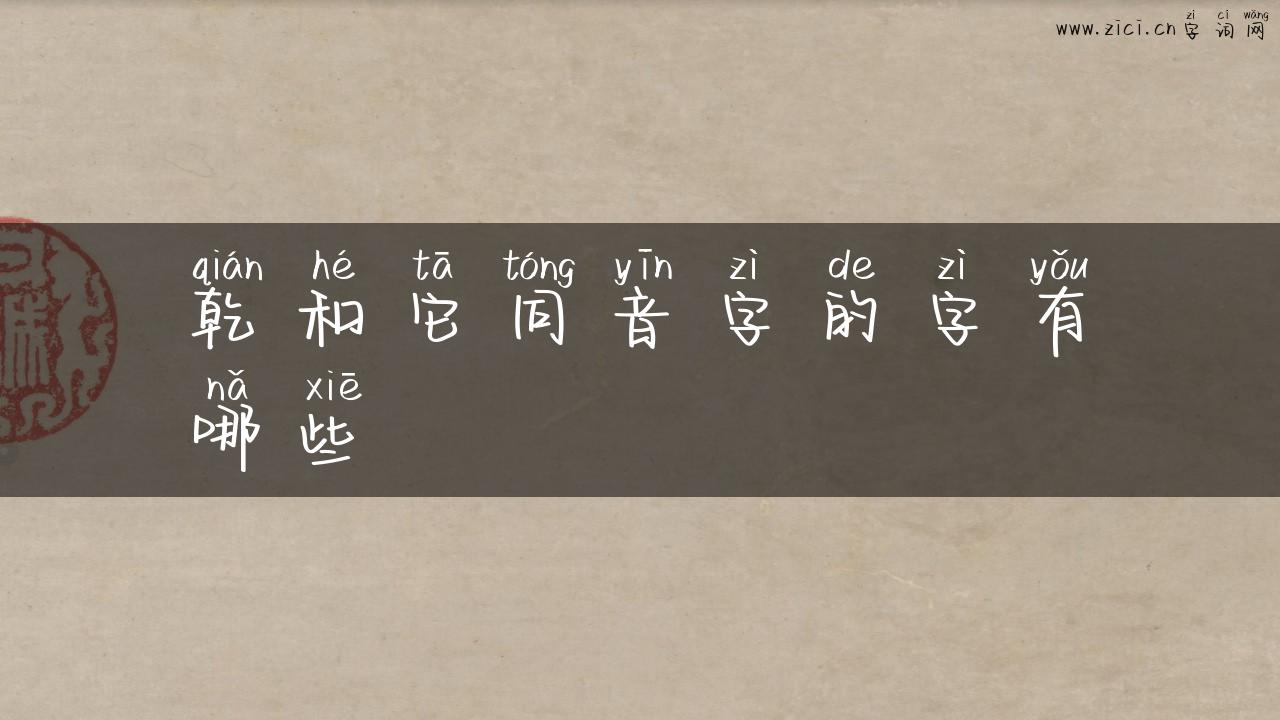 zì cí wǎng
www.zici.cn 字词网
qián hé tā tóng yīn zì de zì yǒu
乾和它同音字的字有
nǎ xiē
哪些